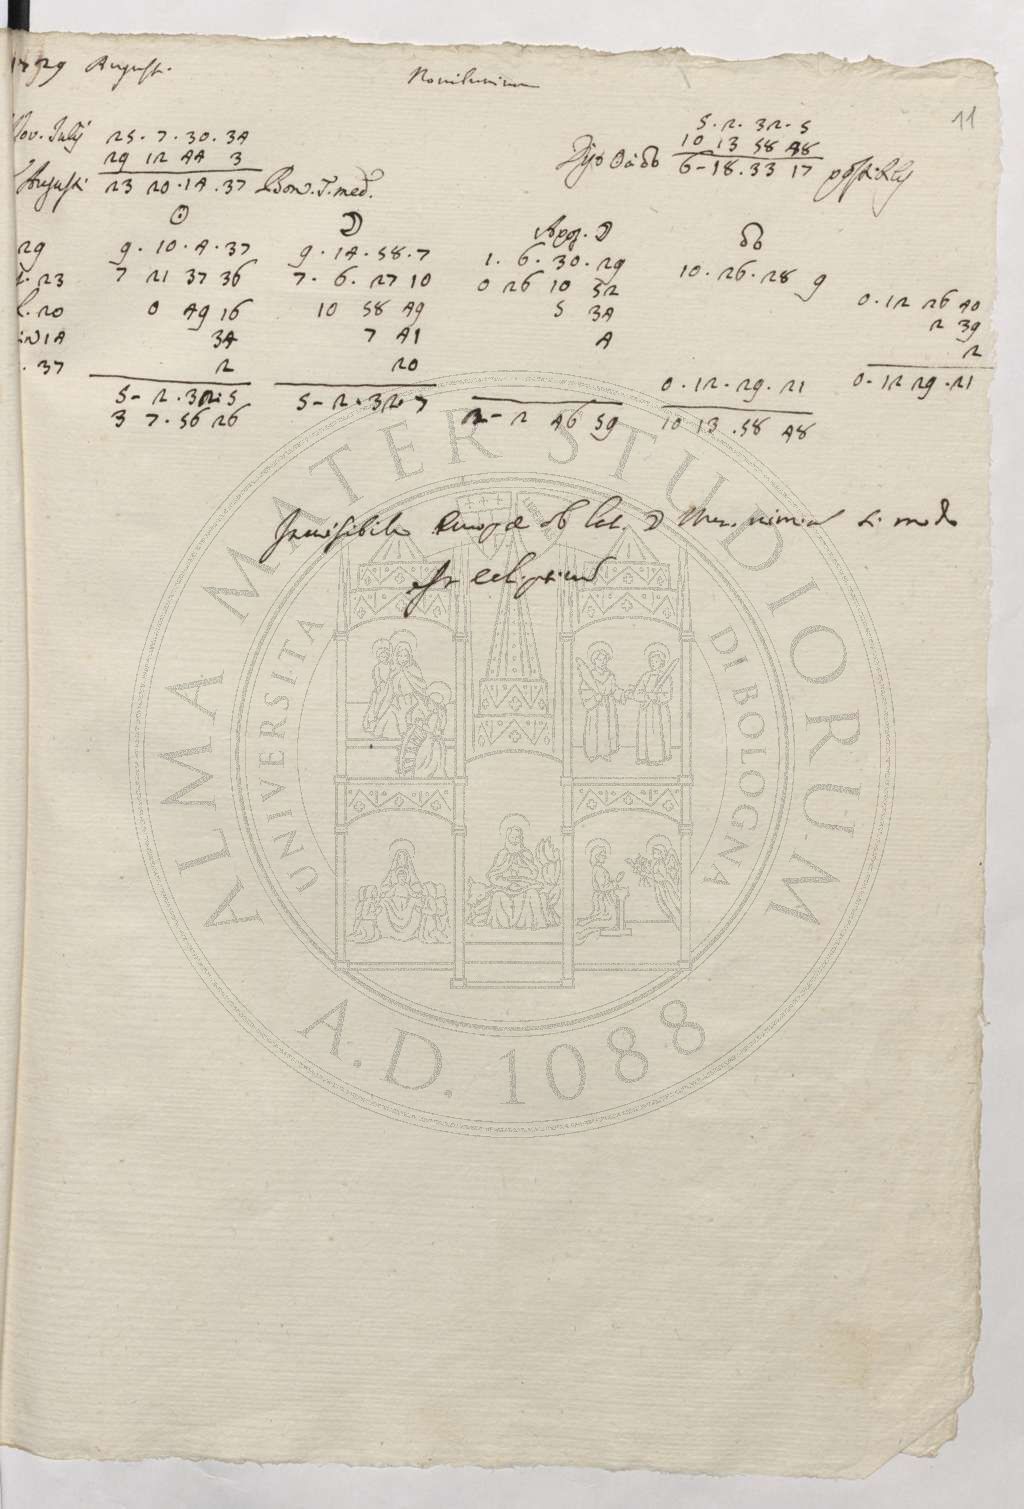 1729 Augusti.
Novilunium
11
Nov. Julij 25. 7. 30. 34
29 12 44 3
Augusti 23 20. 14. 37 Bon. T. med.
5. 2. 32. 5
10 13 58 48
6 - 18. 33 17
☉ ☽ Apog. ☽ ☊
29 9. 10. 4. 37 9. 14. 58. 7 1. 6. 30. 29 10. 26. 28 9
23 7 21 37 36 7. 6. 27 10 0 26 10 52 0. 12 26 40
20 0 49 16 10 58 49 5 34 2 39
14 34 7 41 4 2
37 2 20 0. 12. 29. 21 0. 12 29. 21
5 - 2. 32. 5 5 - 2. 32. 7 2 - 2 46 59 10 13. 58 48
3 7. 56 26
Invisibilis Europæ ob lat. ☽ Mer. nimiam
ecliptica
ALMA MATER STUDIORUM
UNIVERSITA DI BOLOGNA
A.D. 1088